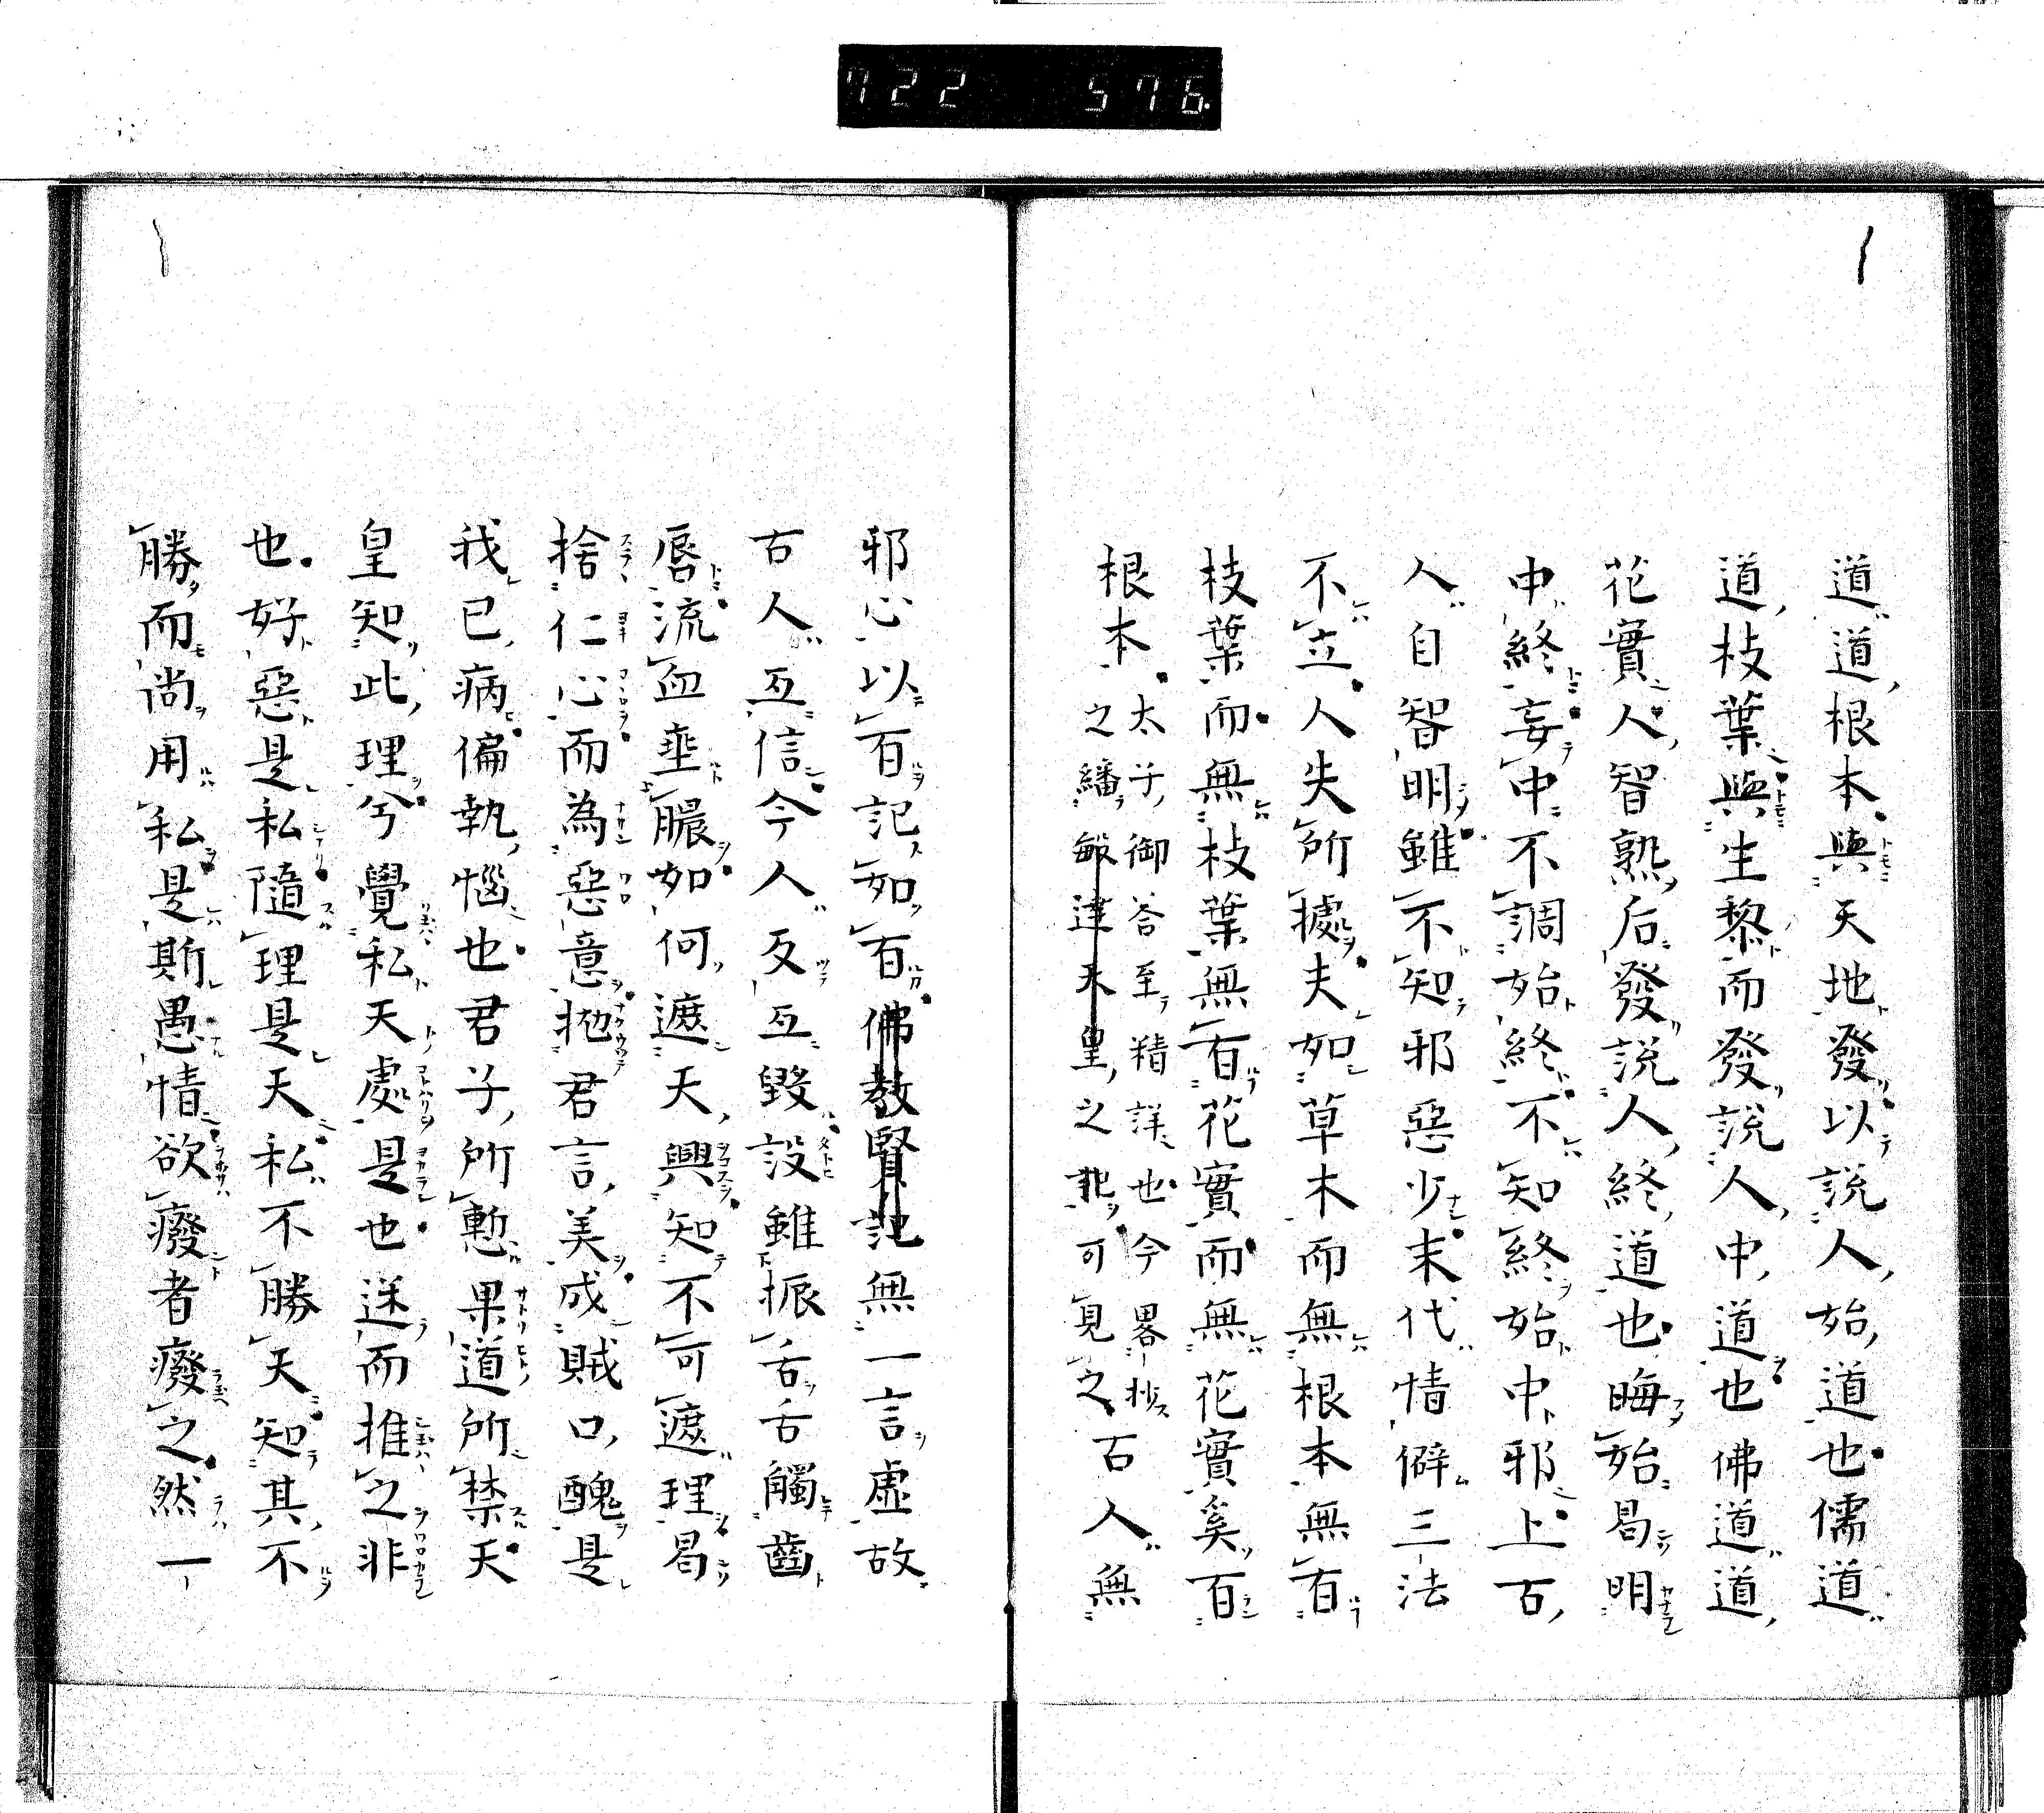 722 576.
道道根本與天地發以説人始道也儒道
道枝葉與生黎而發説人中道也佛道道
花實人智熟后發説人終道也晦始曷明
中終妄中不調始終不知終始中邪上古
人自智明雖不知邪惡少末代情僻三法
不立人失所據夫如草木而無根本無有
枝葉而無枝葉無有花實而無花實奚有
根本
太子御答至精詳也今畧抄
之繙敏達天皇之記可見之
古人無
邪心以有記知有佛教賢記無一言虚故
古人互信今人反互毀設雖振舌舌觸齒
唇流血垂膿如何遮天興知不可遮理曷
捨仁心而為惡意拋君言美成賊口醜是
我已病偏執惱也君子所慙果道所禁天
皇知此理兮覺私天處是也迷而推之非
也好惡是私隨理是天私不勝天知其不
勝而尚用私是斯愚情欲癈者癈之然一